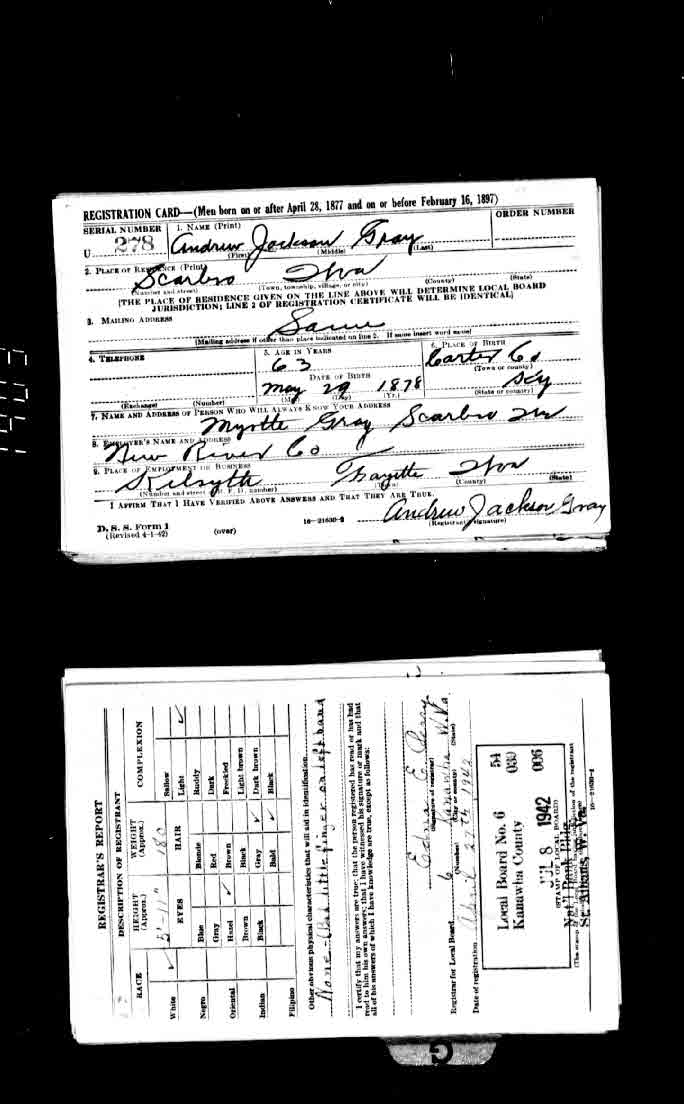 REGISTRATION CARD—(Men born on or after April 28, 1877 and on or before February 16, 1897)
SERIAL NUMBER
1. NAME (Print)
ORDER NUMBER
U 278
Andrew Jackson Gray
(First) (Middle) (Last)
2. PLACE OF RESIDENCE (Print)
Scarbro WVa
(Number and street) (Town, township, village, or city) (County) (State)
[THE PLACE OF RESIDENCE GIVEN ON THE LINE ABOVE WILL DETERMINE LOCAL BOARD
JURISDICTION; LINE 2 OF REGISTRATION CERTIFICATE WILL BE IDENTICAL]
3. MAILING ADDRESS
Same
[Mailing address if other than place indicated on line 2. If same insert word same]
4. TELEPHONE
5. AGE IN YEARS
6. PLACE OF BIRTH
63
Carter Co
(Town or county)
DATE OF BIRTH
May 29 1878
Ky
(Exchange) (Number)
(Mo.) (Day) (Yr.)
(State or country)
7. NAME AND ADDRESS OF PERSON WHO WILL ALWAYS KNOW YOUR ADDRESS
Myrtle Gray Scarbro
8. EMPLOYER'S NAME AND ADDRESS
New River Co
9. PLACE OF EMPLOYMENT OR BUSINESS
Kilsyth Fayette WVa
(Number and street or R. F. D. number) (Town) (County) (State)
I AFFIRM THAT I HAVE VERIFIED ABOVE ANSWERS AND THAT THEY ARE TRUE.
Andrew Jackson Gray
D. S. S. Form 1
(Revised 4-1-42)
(over)
16—21630-2
(Registrant's signature)
REGISTRAR'S REPORT
DESCRIPTION OF REGISTRANT
RACE
HEIGHT
(Approx.)
WEIGHT
(Approx.)
COMPLEXION
White ✓
5'-11"
180
Sallow
EYES
HAIR
Light ✓
Negro
Blue
Blonde
Ruddy
Gray
Red
Dark
Oriental
Hazel ✓
Brown
Freckled
Brown
Black
Light brown
Indian
Black
Gray ✓
Dark brown
Bald ✓
Black
Filipino
Other obvious physical characteristics that will aid in identification
little finger on left hand
I certify that my answers are true; that the person registered has read or has had
read to him his own answers; that I have witnessed his signature or mark and that
all of his answers of which I have knowledge are true, except as follows:
Edna E. Perry
(Signature of registrar)
Registrar for Local Board 6 Kanawha W.Va.
(Number) (City or county) (State)
Date of registration April 27th 1942
Local Board No. 6 54
Kanawha County 039
006
JUL 8 1942
(STAMP OF LOCAL BOARD)
Nat'l Bank Bldg.
St. Albans, W. Va.
16—21630-2